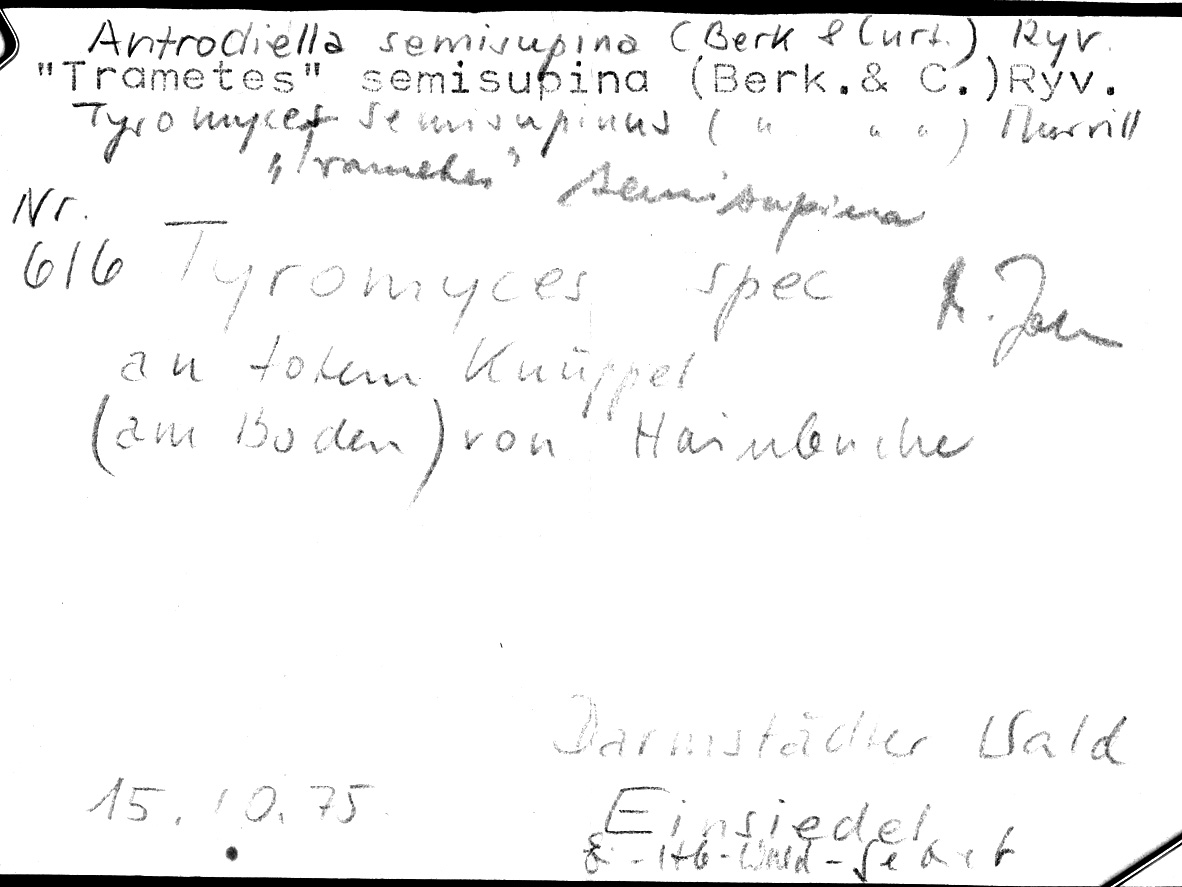 Antrodiella semisupina (Berk & Curt.) Ryv.
"Trametes" semisupina (Berk.& C.)Ryv.
Tyromyces semisupinus ( " " " ) Murrill
"Trametes" semisupina
Nr.
616 Tyromyces spec
an totem Knüppel
(am Boden) von Hainbuche
Darmstädter Wald
15.10.75
Einsiedel